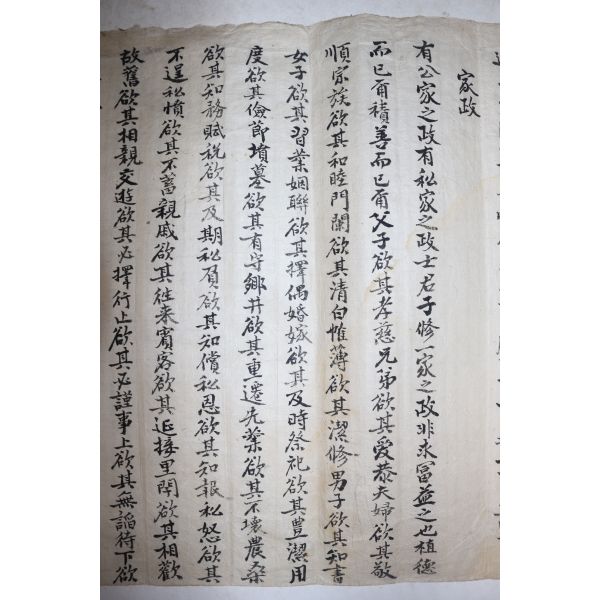 家政
有公家之政有私家之政士君子修一家之政非求富益之也植德
而已爾積善而已爾父子欲其孝慈兄弟欲其愛恭夫婦欲其敬
順宗族欲其和睦門闌欲其清白帷薄欲其潔修男子欲其知書
女子欲其習業姻聯欲其擇偶婚嫁欲其及時祭祀欲其豊潔用
度欲其儉節墳墓欲其有守鄉井欲其重遷先業欲其不壞農桑
欲其知務賦稅欲其及期私負欲其知償私恩欲其知報私怒欲其
不逞私憤欲其不蓄親戚欲其往来賓客欲其延接里閈欲其相歡
故舊欲其相親交遊欲其必擇行止欲其必謹事上欲其無諂待下欲